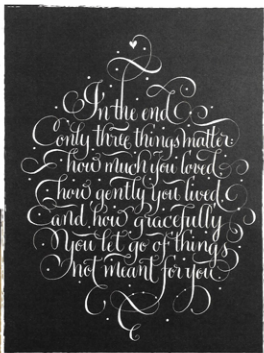 In the end
only three things matter:
how much you loved
how gently you lived
and how gracefully
you let go of things
not meant for you